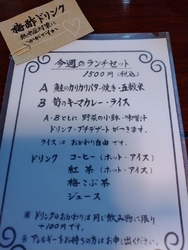 梅酢ドリンク
今週のランチセット
1500円(税込)
A 鮭のカリカリバター焼き・五穀米
B 旬のキーマカレー・ライス
A・Bともに 野菜の小鉢・味噌汁
ドリンク・プチデザートがつきます。
ライスは おかわり自由です。
ドリンク コーヒー(ホット・アイス)
紅茶(ホット・アイス)
梅こぶ茶
ジュース
※ドリンクのおかわりは同じ飲み物に限り
+100円です。
※アレルギーをお持ちの方はお申し出ください。